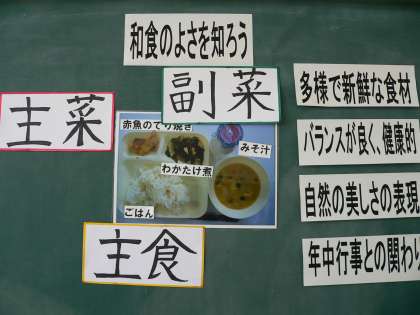 和食のよさを知ろう
主菜
副菜
赤魚のてり焼き
みそ汁
わかたけ煮
ごはん
主食
多様で新鮮な食材
バランスが良く、健康的
自然の美しさの表現
年中行事との関わり